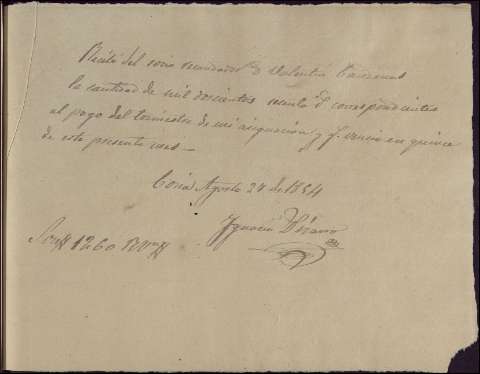 Recibí del socio recaudador D. Valentin Cardenas
la cantidad de mil doscientos sesenta rs. correspondientes
al pago del trimestre de mi asignación y q. venció en quince
de este presente mes
Coria Agosto 27 de 1854
Ignacio
Son 1260 Rvn